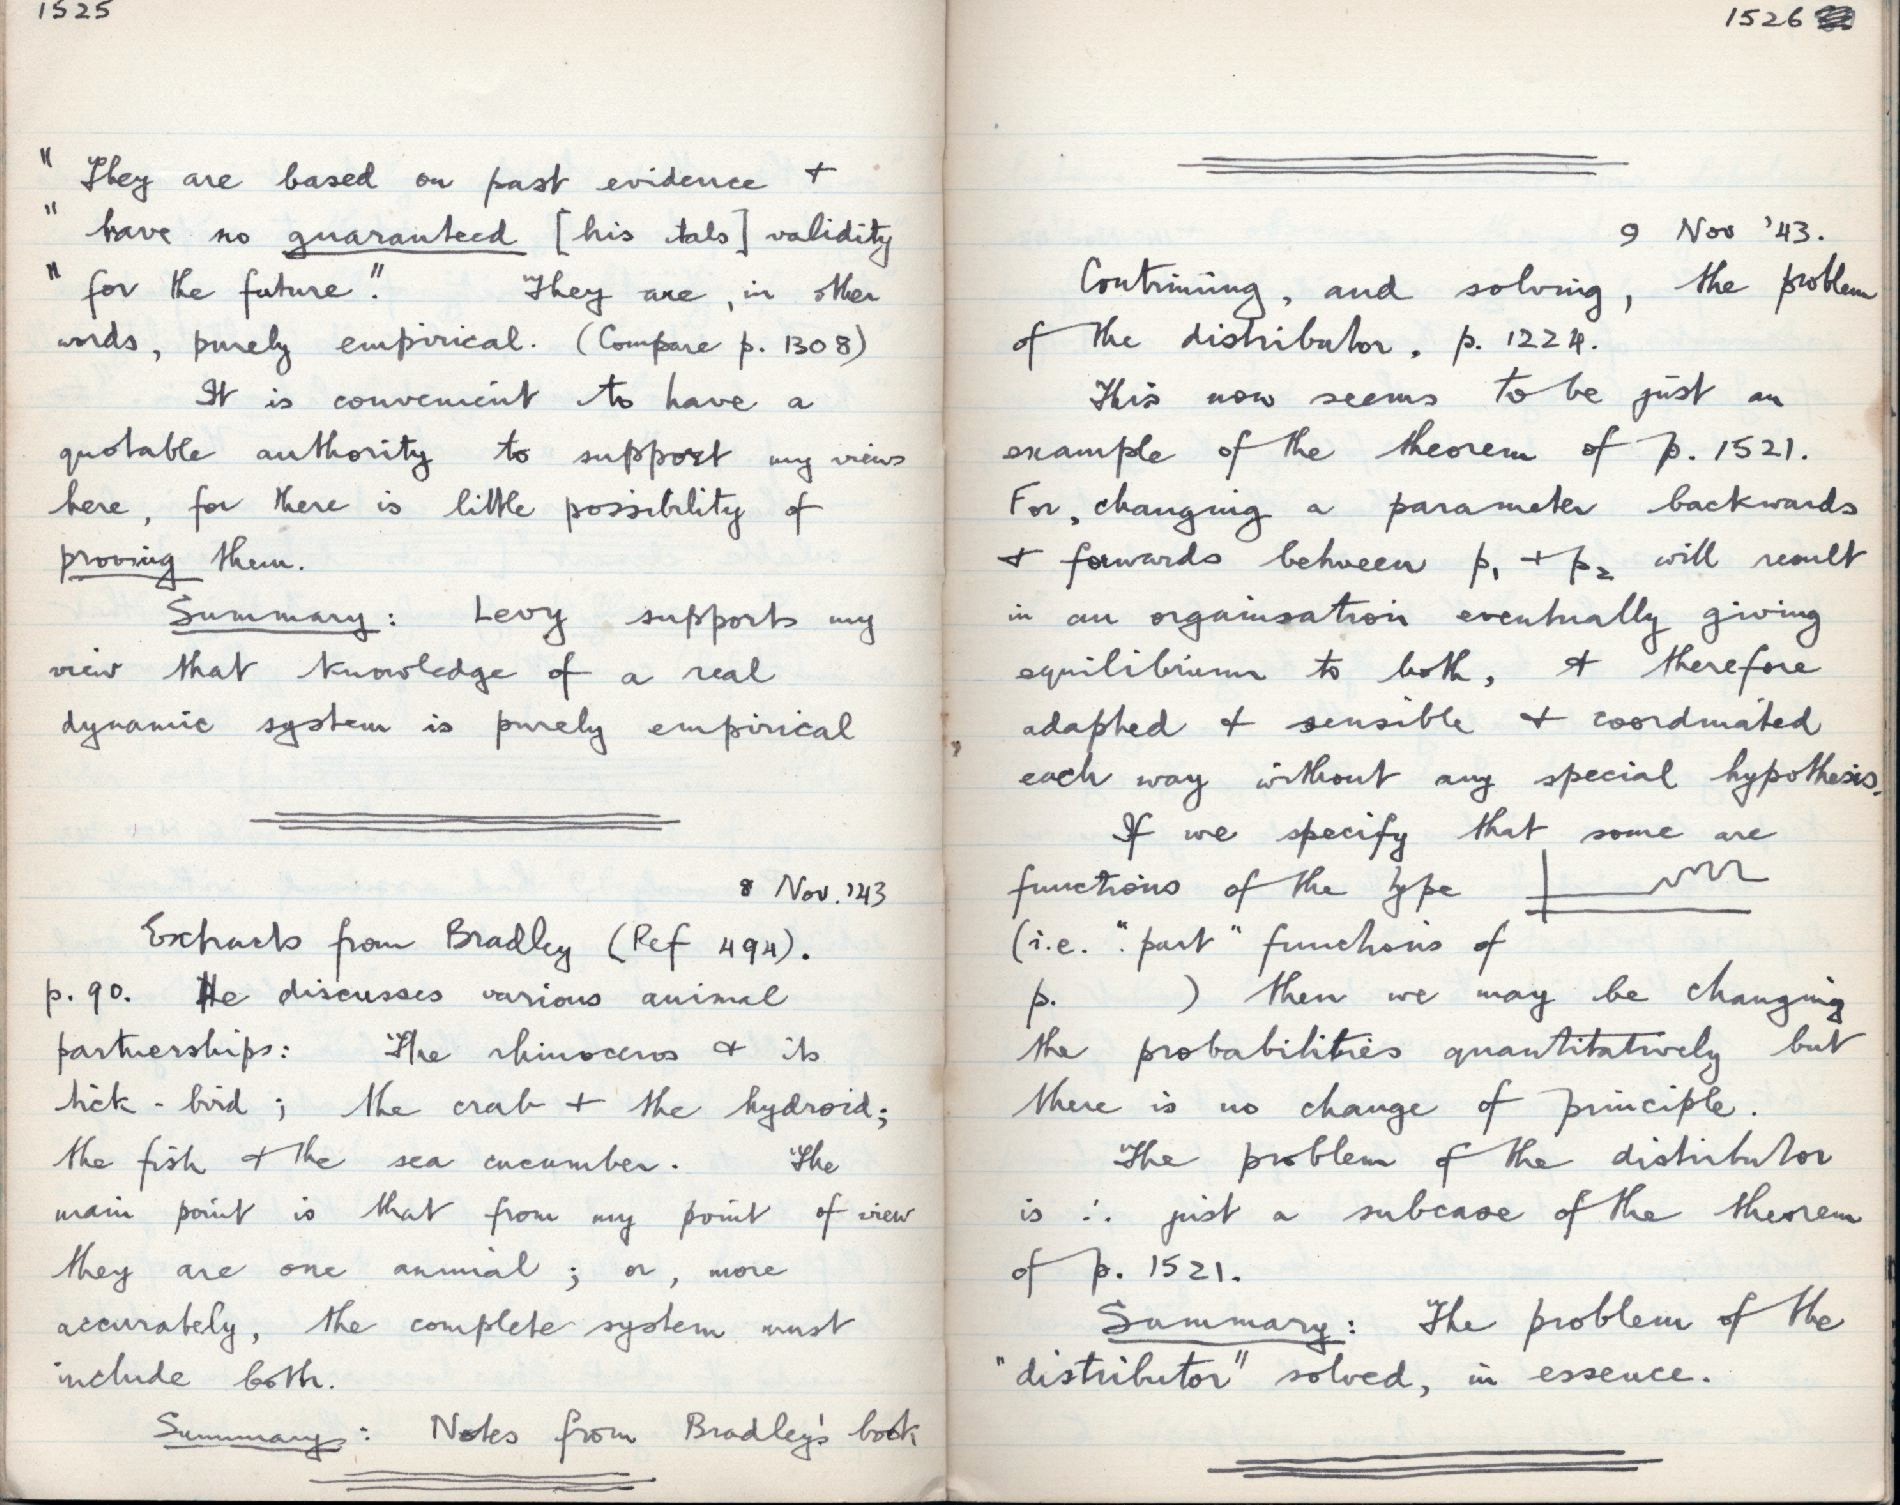 1525
" They are based on past evidence +
" have no guaranteed [his itals] validity
" for the future". They are, in other
words, purely empirical. (Compare p. 1308)
It is convenient to have a
quotable authority to support my views
here, for there is little possibility of
proving them.
Summary: Levy supports my
view that knowledge of a real
dynamic system is purely empirical
8 Nov. '43
Extracts from Bradley (Ref 494).
p. 90. He discusses various animal
partnerships: The rhinoceros + its
tick-bird; the crab + the hydroid;
the fish + the sea cucumber. The
main point is that from my point of view
they are one animal; or, more
accurately, the complete system must
include both.
Summary: Notes from Bradley's book
1526
9 Nov '43.
Continuing, and solving, the problem
of the distributor, p. 1224.
This now seems to be just an
example of the theorem of p. 1521.
For, changing a parameter backwards
+ forwards between p₁ + p₂ will result
in an organisation eventually giving
equilibrium to both, + therefore
adapted + sensible + coordinated
each way without any special hypothesis.
If we specify that some are
functions of the type
(i.e. "part" functions of
p. ) then we may be changing
the probabilities quantitatively but
there is no change of principle.
The problem of the distributor
is ∴ just a subcase of the theorem
of p. 1521.
Summary: The problem of the
"distributor" solved, in essence.